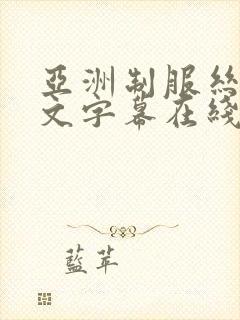 亞洲制服絲
文字幕在綫
藍苹